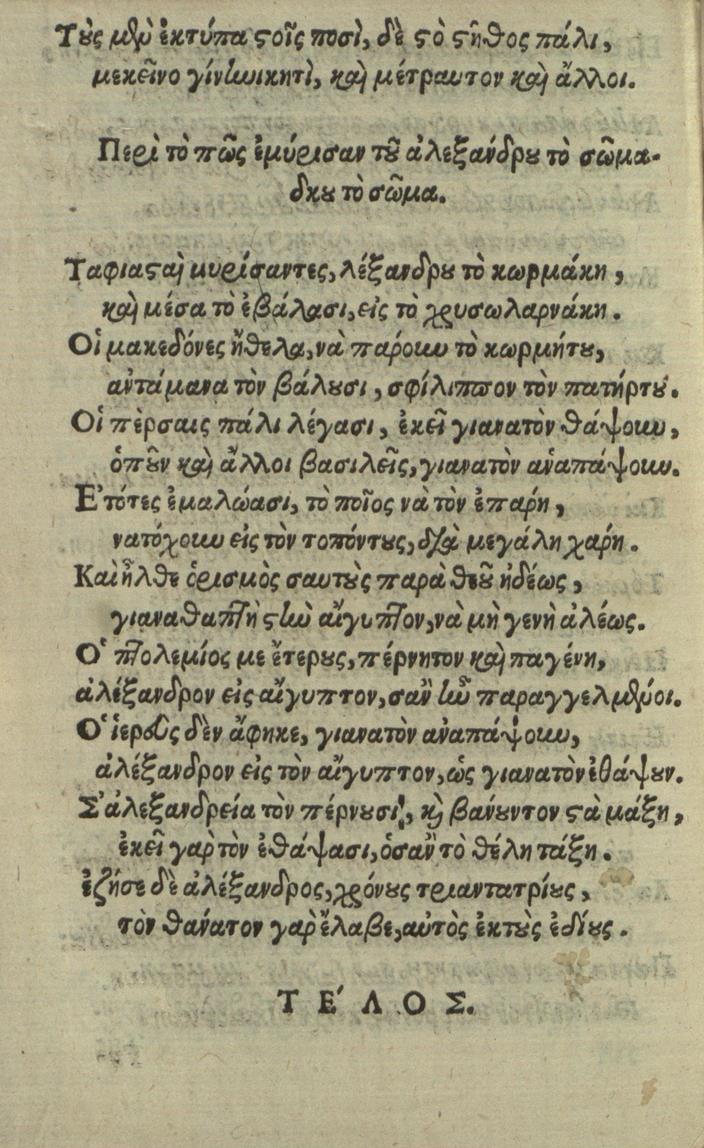 Τοὺς μὲν ἐκτύπα στοῖς ποσὶ, δὲ στὸ στῆθος πάλι,
μεκεῖνο γίνην ικητὶ, καὶ μέτραυτον καὶ ἄλλοι.
Περὶ τὸ πῶς ἐμύρισαν τοῦ ἀλεξάνδρου τὸ σῶμα-
δκου τὸ σῶμα.
Ταφιασταὶ μυρίσαντες, λέξανδρου τὸ κωρμάκη,
καὶ μέσα τὸ ἐβάλασι, εἰς τὸ χρυσωλαρνάκη.
Οἱ μακεδόνες ἤθελα, νὰ πάροιων τὸ κωρμήτου,
αὐτάμανα τὸν βάλουσι, σφίλιππον τὸν πατήρτου.
Οἱ πέρσαις πάλι λέγασι, ἐκεῖ γιανατὸν θάψουν,
ὁποῦν καὶ ἄλλοι βασιλεῖς, γιανατὸν ἀναπάψουν.
Ἐτότες ἐμαλώασι, τὸ ποῖος νὰ τὸν ἐπάρη,
νατόχουν εἰς τὸν τοπόντους, διὰ μεγάλη χάρη.
Καὶ ἦλθε ὁρισμὸς σαυτοὺς παρὰ θεοῦ ἡδέως,
γιαναθαπτὴ στὴν αἴγυπτον, νὰ μὴ γενὴ ἀλέως.
Ὁ πτολεμίος με ἔτερους, πέρνητον καὶ παγένη,
ἀλέξανδρον εἰς αἴγυπτον, σαῒν ἦν παραγγελμένοι.
Ὁ ἱεροὺς δὲν ἄφηκε, γιανατὸν ἀναπάψουν,
ἀλέξανδρον εἰς τὸν αἴγυπτον, ὡς γιανατὸν ἐθάψουν.
Σ' ἀλεξανδρεία τὸν πέρνουσι, καὶ βανουντον στὰ μάξη,
ἐκεῖ γαρ τὸν ἐθάψασι, ὁσαῒν τὸ θέλη τάξη.
ἐζῆσε δὲ ἀλέξανδρος, χρόνους τριαντατρίους,
τὸν θάνατον γαρ ἔλαβε, αὐτὸς ἐκτοὺς ἐδίους.
ΤΕ΄ΛΟΣ.